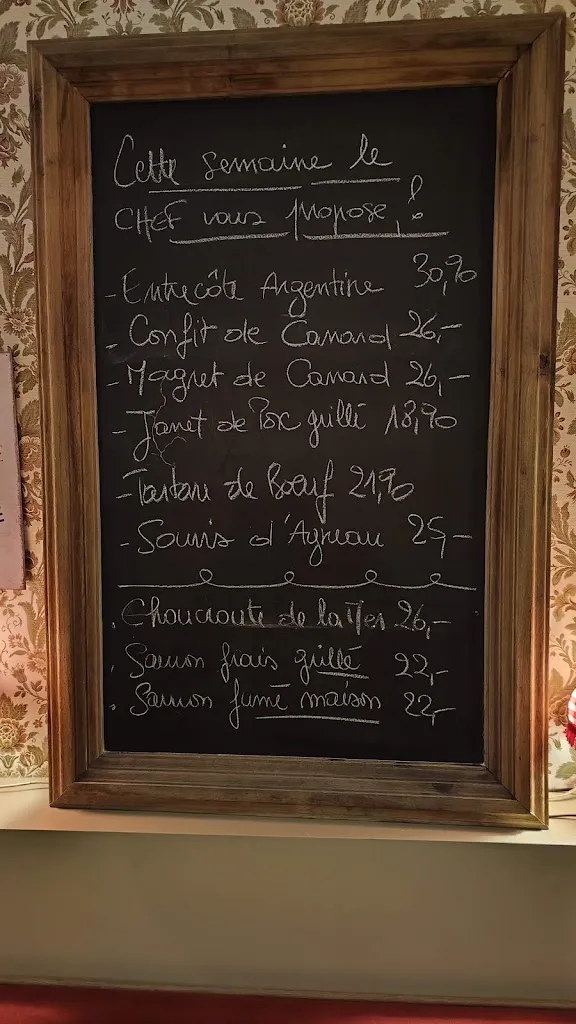 Cette semaine le
CHEF vous propose !
- Entrecôte Argentine 30,90
- Confit de Canard 26,-
- Magret de Canard 26,-
- Jarret de Porc grillé 18,90
- Tartare de Boeuf 21,90
- Souris d'Agneau 25,-
. Choucroute de la Mer 26,-
. Saumon frais grillé 22,-
. Saumon fumé maison 22,-